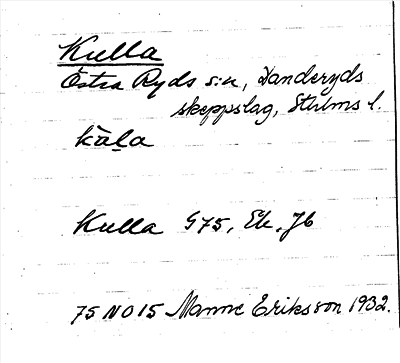 Kulla
Östra Ryds s:n, Danderyds
skeppslag, Sthlms l.
kä̀l̲a
Kulla G75, Ek, Jb
75 NO 15 Manne Eriksson 1932.